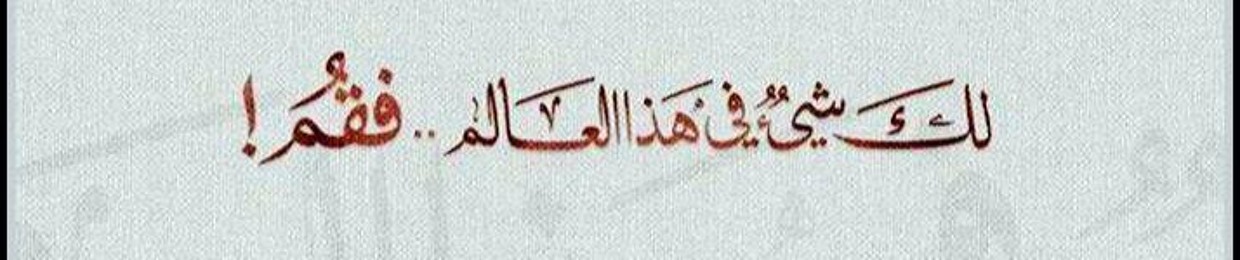 لكَ شيءٌ في هَذا العالم .. فقُمَ !